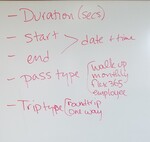 - Duration (secs)
- start > date + time
- end
- pass type { walk up
monthly
flex 365
employee
- Trip type { Round trip
one way